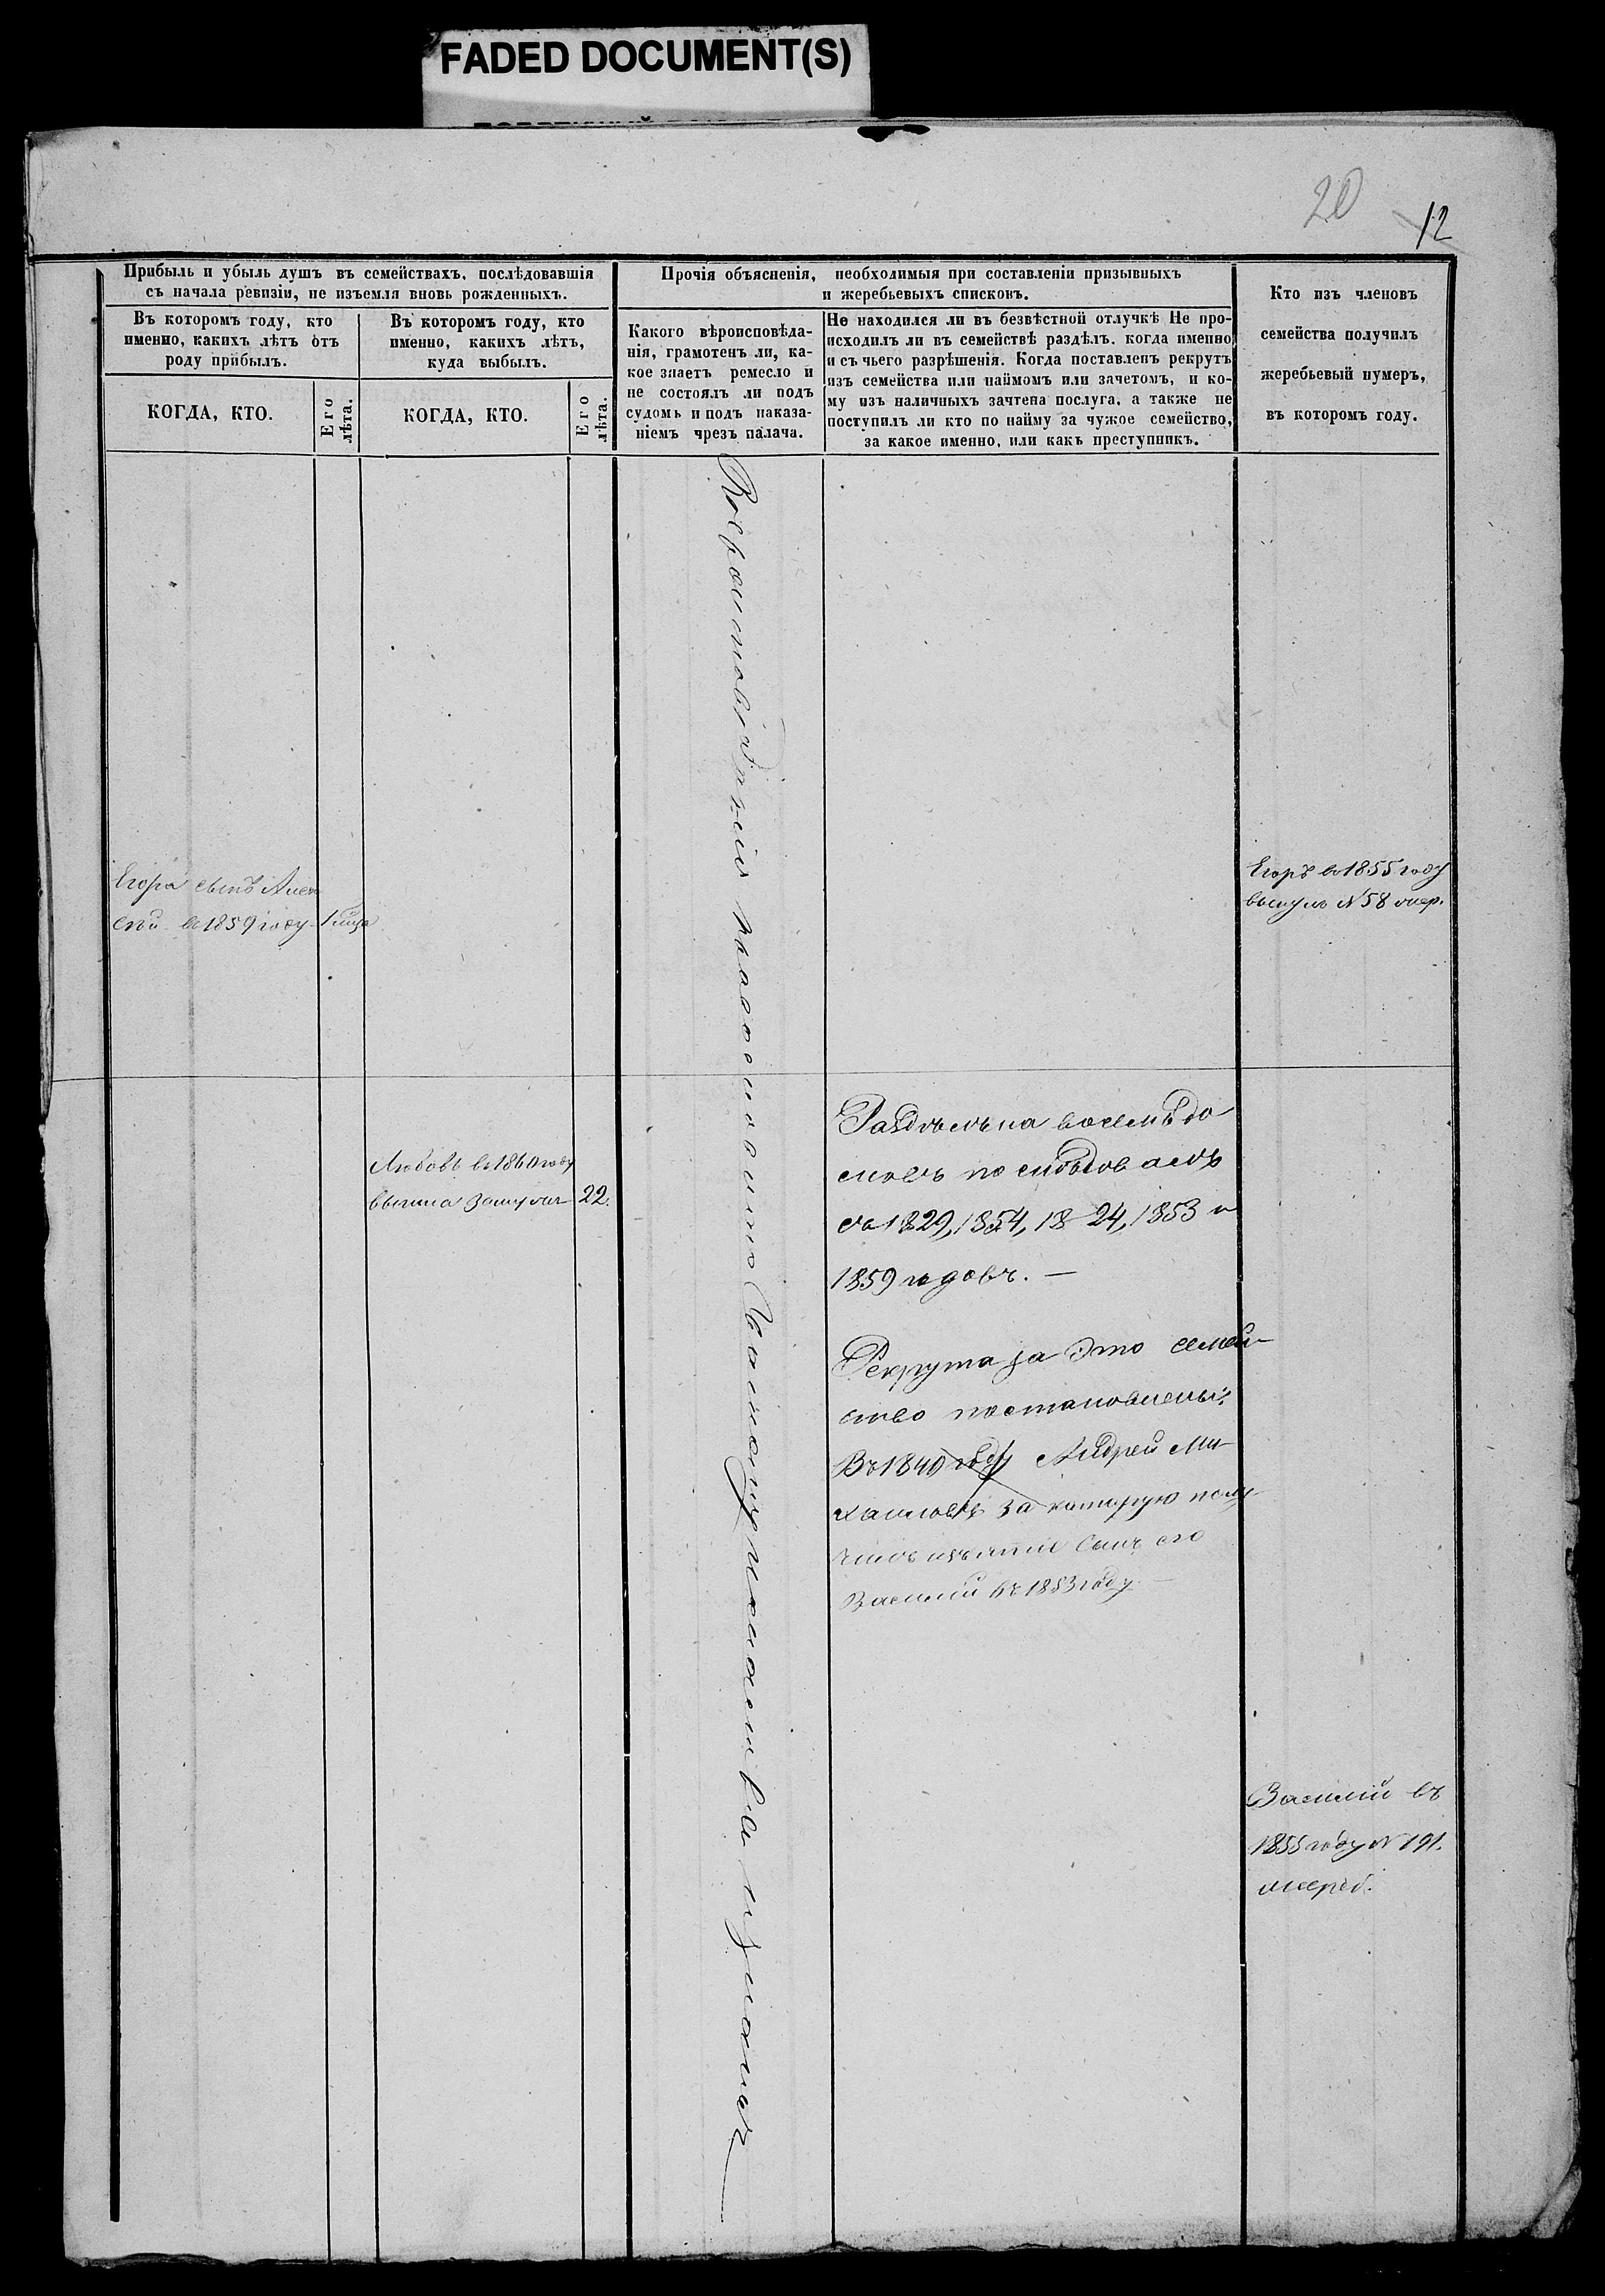 FADED DOCUMENT(S)
20
12
Прибыль и убыль душъ въ семействахъ, послѣдовавшія
съ начала ревизіи, не изъемля вновь рожденныхъ.
Въ которомъ году, кто
именно, какихъ лѣтъ отъ
роду прибылъ.
КОГДА, КТО.
Его
лѣта.
Въ которомъ году, кто
именно, какихъ лѣтъ,
куда выбылъ.
КОГДА, КТО.
Его
лѣта.
Прочія объясненія, необходимыя при составленіи призывныхъ
и жеребьевыхъ списковъ.
Какого вѣроисповѣда-
нія, грамотенъ ли, ка-
кое знаетъ ремесло и
не состоялъ ли подъ
судомъ и подъ наказа-
ніемъ чрезъ палача.
Не находился ли въ безвѣстной отлучкѣ Не про-
исходилъ ли въ семействѣ раздѣлъ, когда именно
и съ чьего разрѣшенія. Когда поставленъ рекрутъ
изъ семейства или наймомъ или зачетомъ, и ко-
му изъ наличныхъ зачтена послуга, а также не
поступилъ ли кто по найму за чужое семейство,
за какое именно, или какъ преступникъ.
Кто изъ членовъ
семейства получилъ
жеребьевый нумеръ,
въ которомъ году.
Егора сынъ Алек
сѣй въ 1859 году
Любовь въ 1860 году
вышла замужъ 22.
православнаго
Раздѣлъ на восемь до
мовъ послѣдовалъ
съ 1829, 1854, 18 24, 1853 и
1859 годовъ. —
Рекрута за это семей
ство поставлены:
Въ 1840 году Андрей Ми
хайловъ за которую полу
Василій въ 1853 году. —
Егоръ въ 1855 году
вынулъ № 58 жер.
Василій въ
1855 году № 191.
жереб.